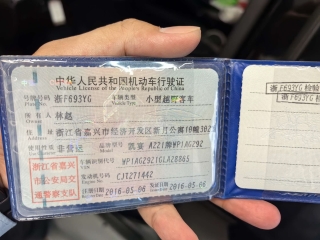 中华人民共和国机动车行驶证
Vehicle License of the People's Republic of China
号牌号码 浙F693YG 车辆类型 小型越野客车
所有人 林超
住址 浙江省嘉兴市经济开发区新月公寓10幢302
使用性质 非营运 品牌型号
浙江省嘉兴
市公安局交
通警察支队
车辆识别代号 WP1AG29Z1GLA28865
发动机号码 CJTZ71442
注册日期 2016-05-06 发证日期 2016-05-06
浙F693YG 检验
浙F693YG